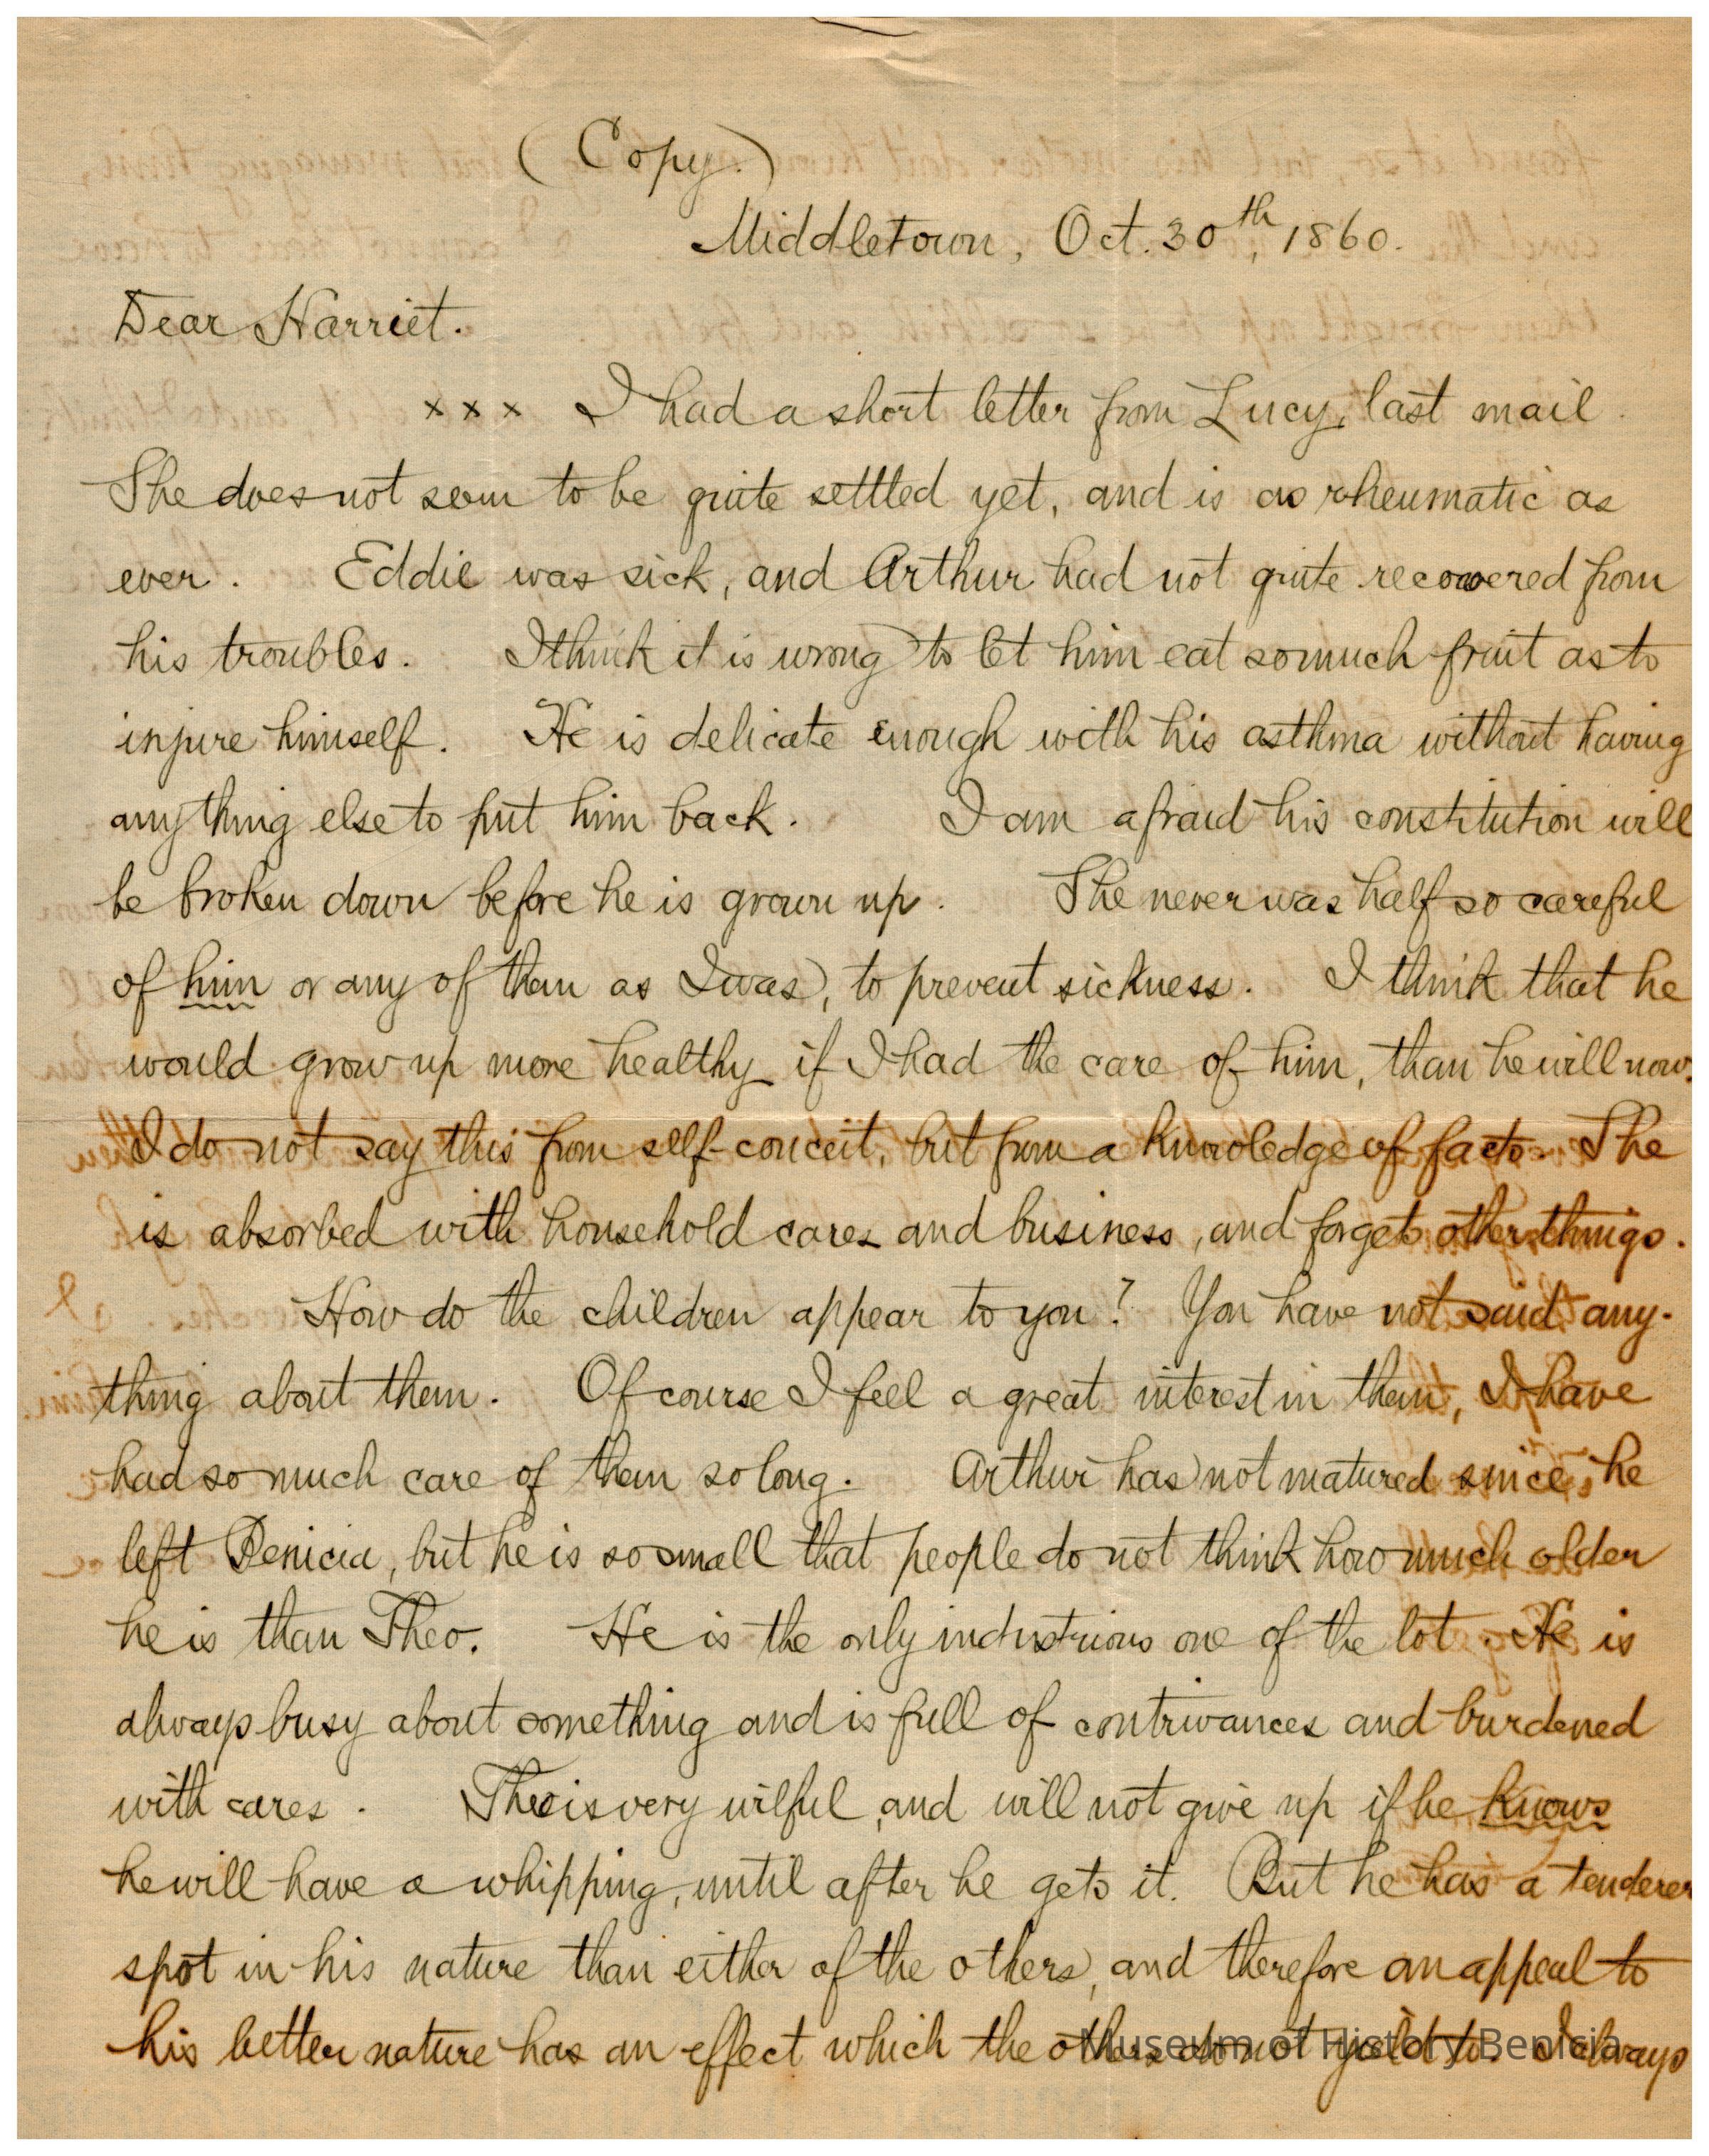 (Copy.)
Middletown, Oct. 30th, 1860.
Dear Harriet.
x x x I had a short letter from Lucy, last mail.
She does not seem to be quite settled yet, and is as rheumatic as
ever. Eddie was sick, and Arthur had not quite recovered from
his troubles. I think it is wrong to let him eat so much fruit as to
injure himself. He is delicate enough with his asthma without having
anything else to put him back. I am afraid his constitution will
be broken down before he is grown up. She never was half so careful
of him or any of them as I was, to prevent sickness. I think that he
would grow up more healthy if I had the care of him, than he will now.
I do not say this from self-conceit, but from a knowledge of facts. She
is absorbed with household cares and business, and forgets other things.
How do the children appear to you? You have not said any-
thing about them. Of course I feel a great interest in them, I have
had so much care of them so long. Arthur has not matured since he
left Benicia, but he is so small that people do not think how much older
he is than Theo. He is the only industrious one of the lot. He is
always busy about something and is full of contrivances and burdened
with cares. Theo is very wilful, and will not give up if he knows
he will have a whipping, until after he gets it. But he has a tenderer
spot in his nature than either of the others, and therefore an appeal to
his better nature has an effect which the others do not yield to. I always
Museum of History Benicia